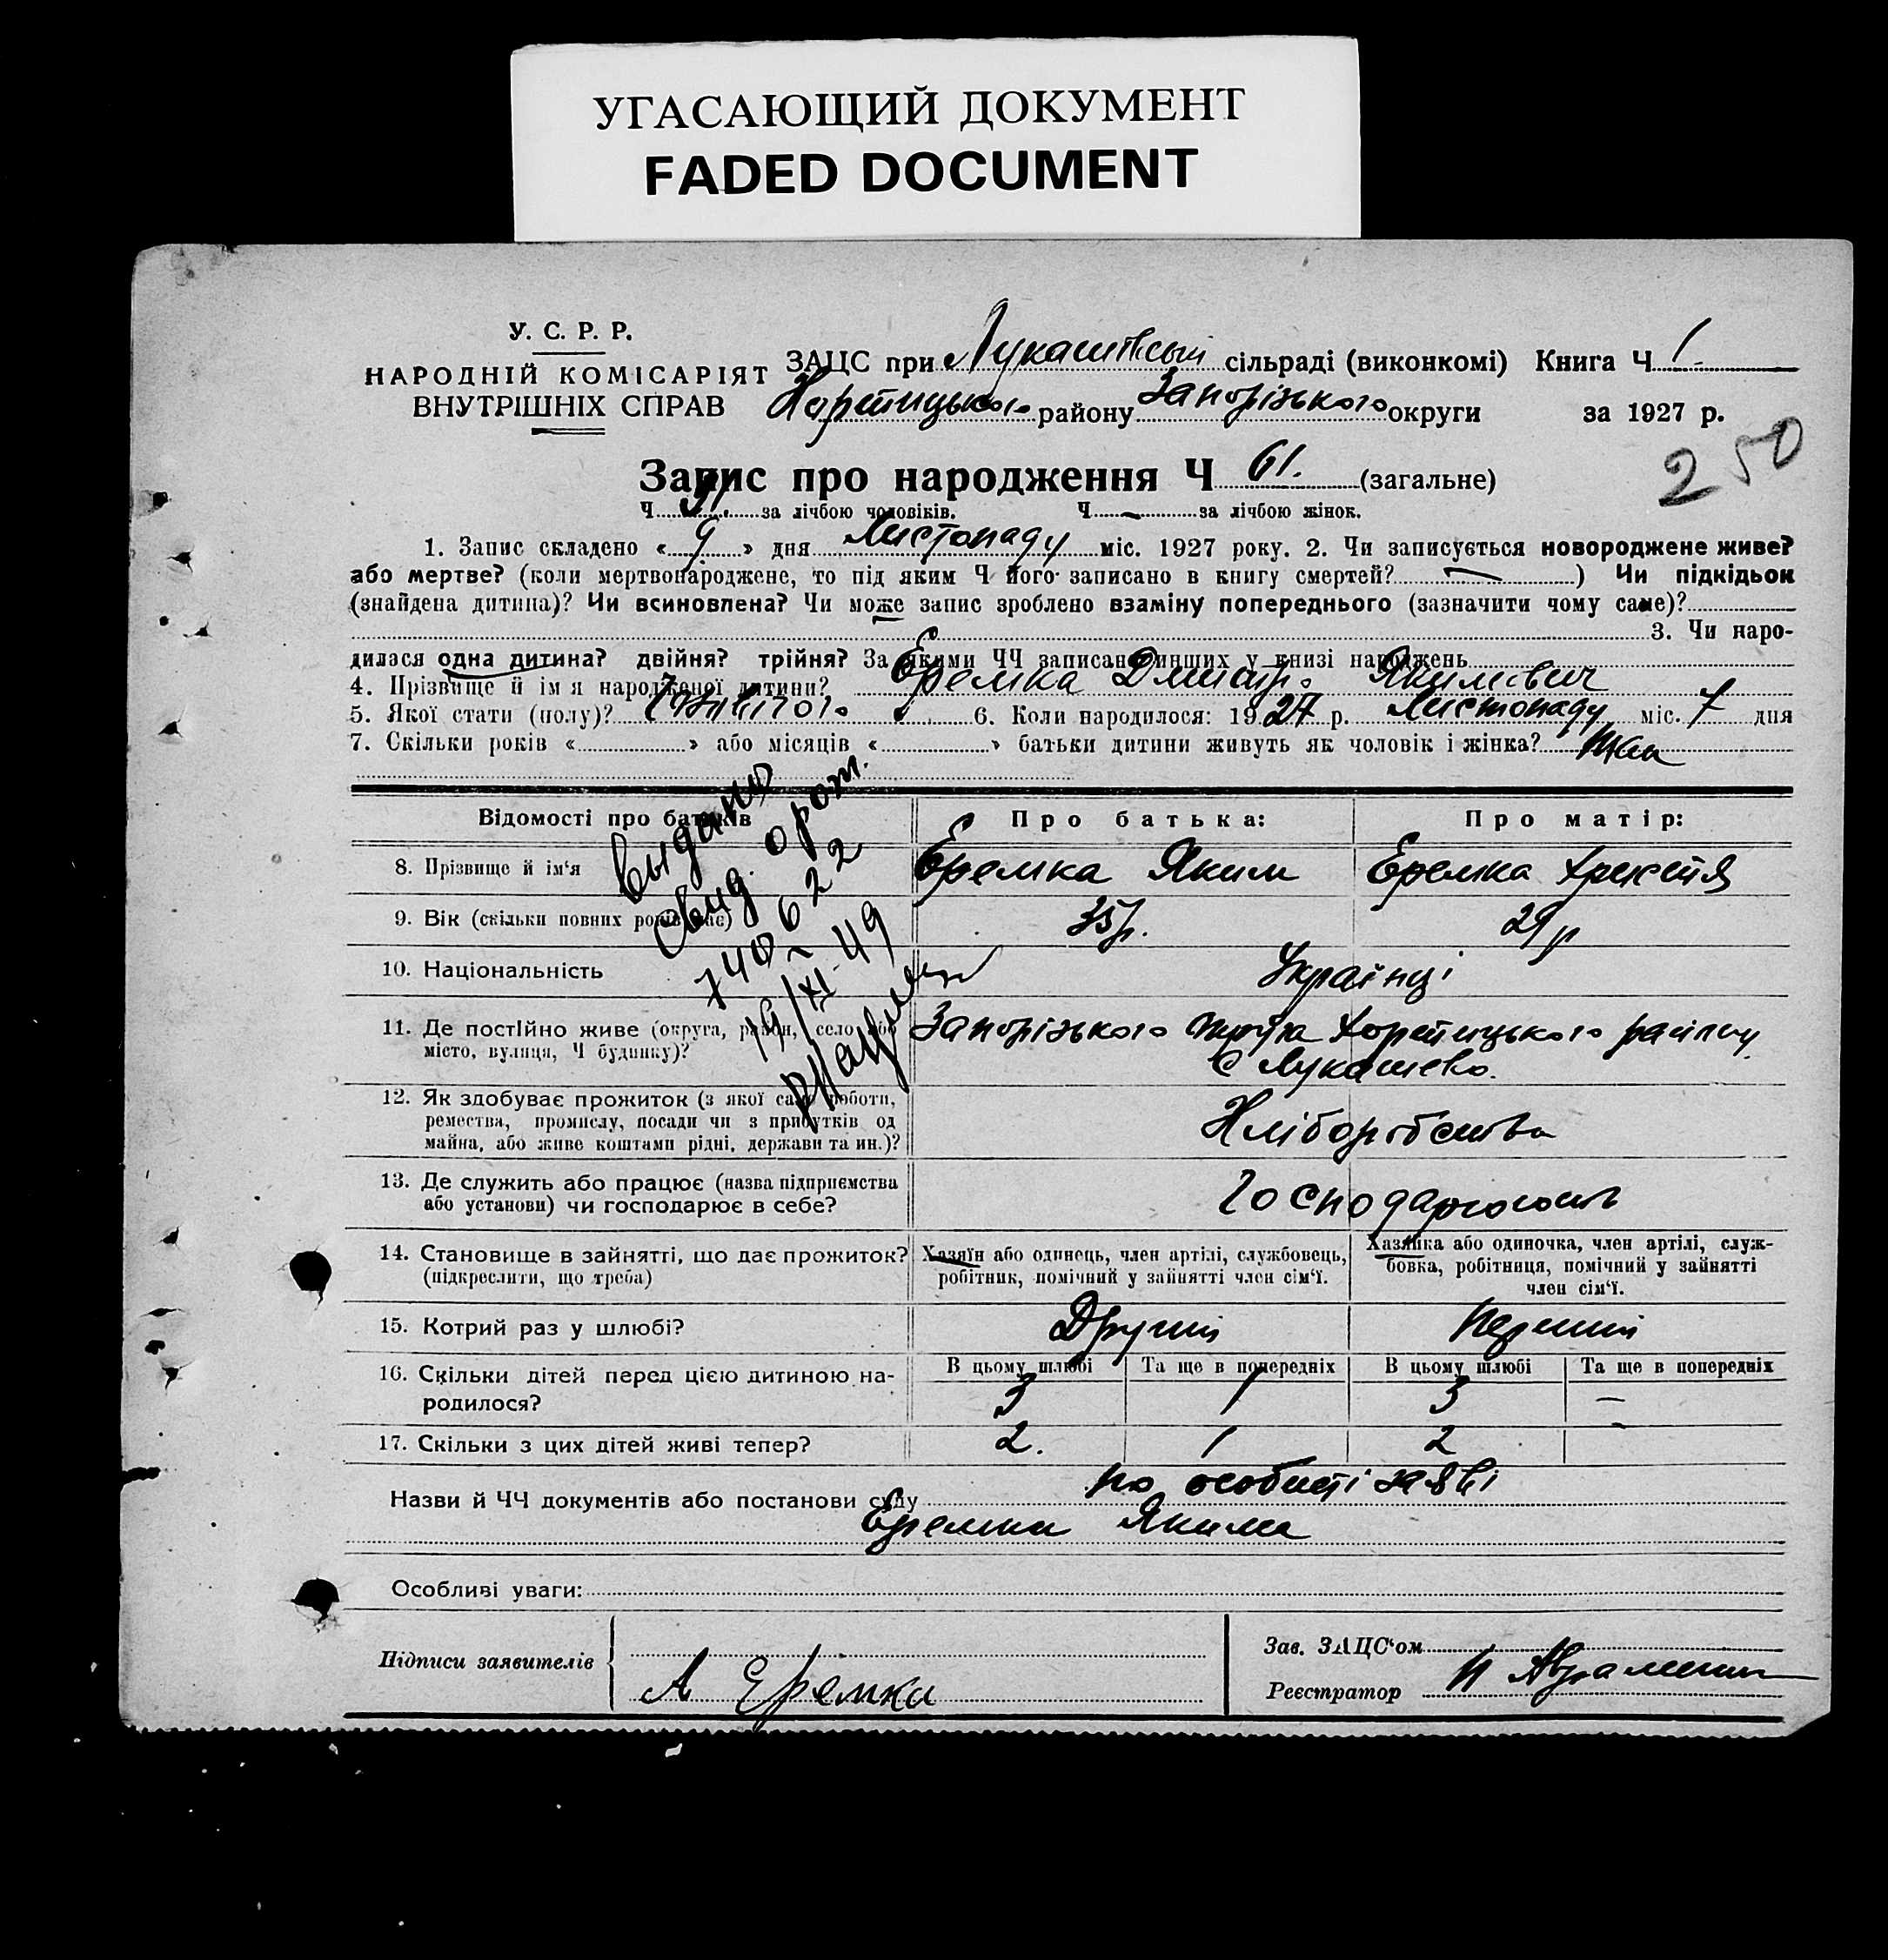 УГАСАЮЩИЙ ДОКУМЕНТ
FADED DOCUMENT
У. С. Р. Р.
НАРОДНІЙ КОМІСАРІЯТ
ВНУТРІШНІХ СПРАВ
ЗАЦС при Лукашівській сільраді (виконкомі) Книга Ч 1.
Хортицького району Запорізького округи за 1927 р.
250
Запис про народження Ч 61. (загальне)
Ч 31. за лічбою чоловіків. Ч — за лічбою жінок.
1. Запис складено « 9 » дня Листопаду міс. 1927 року. 2. Чи записується новороджене живе?
або мертве? (коли мертвонароджене, то під яким Ч його записано в книгу смертей? — ) Чи підкідьок
(знайдена дитина)? Чи всиновлена? Чи може запис зроблено взаміну попереднього (зазначити чому саме)?
3. Чи наро-
дилася одна дитина? двійня? трійня? За якими ЧЧ записано инших у книзі народжень
4. Прізвище й ім я народженої дитини? Еремка Дмитро Якимович
5. Якої стати (полу)? 6. Коли народилося: 1927 р. Листопаду міс. 7 дня
7. Скільки років « » або місяців « » батьки дитини живуть як чоловік і жінка?
Відомості про батьків
Про батька:
Про матір:
8. Прізвище й ім'я Еремка Яким Еремка Христя
9. Вік (скільки повних років має) 35 р. 29 р
10. Національність Українці
11. Де постійно живе (округа, район, село або
місто, вулиця, Ч будинку)?
Запорізького округа Хортицького району
с Лукашево.
12. Як здобуває прожиток (з якої саме роботи,
ремества, промислу, посади чи з прибутків од
майна, або живе коштами рідні, держави та ин.)?
Хліборобства
13. Де служить або працює (назва підприємства
або установи) чи господарює в себе?
Господарюють
14. Становище в зайнятті, що дає прожиток?
(підкреслити, що треба)
Хазяїн або одинець, член артілі, службовець,
робітник, помічний у зайнятті член сім'ї.
Хазяйка або одиночка, член артілі, служ-
бовка, робітниця, помічний у зайнятті
член сім'ї.
15. Котрий раз у шлюбі? Другий Перший
16. Скільки дітей перед цією дитиною на-
родилося?
В цьому шлюбі Та ще в попередніх В цьому шлюбі Та ще в попередніх
3 1 3 —
17. Скільки з цих дітей живі тепер? 2. 1 2 -
Выдано
свид. о рож.
740622
19/XI-49
Назви й ЧЧ документів або постанови суду по особисті заяві
Еремки Якима
Особливі уваги:
Підписи заявителів
А Еремка
Зав. ЗАЦС'ом
Реєстратор И Авраменко